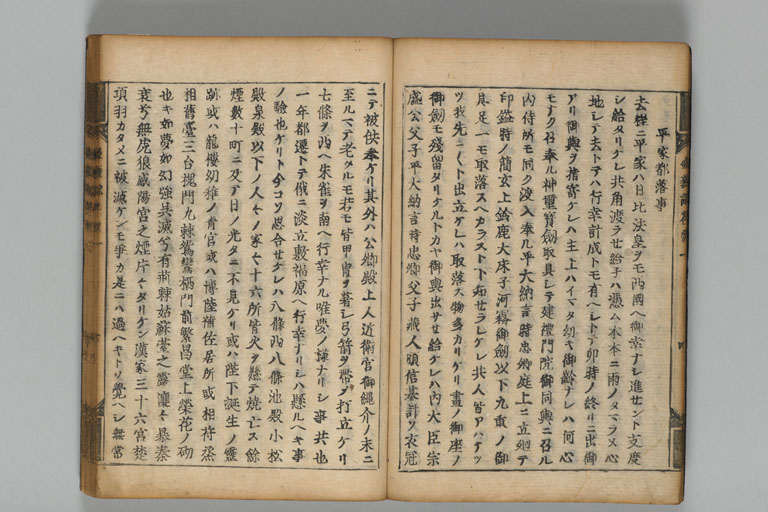 平家都落事
去程ニ平家ハ日比法皇ヲモ西國ヘ御幸ナシ進せント支度
シ給タリケレ共角渡ラせ給ネハ憑ム木本ニ雨ノタマラヌ心
地レテ去トテハ行幸計成トモ有ヘレトテ卯時ノ終リニ出御
アリ御輿ヲ指寄ケレハ主上ハイマタ幼キ御齢ナレハ何心
モナク召奉ル神璽寳劔取具シテ建禮門院御同輿ニ召ル
内侍所モ同ク渡入奉ル平大納言時忠卿庭上ニ立廻テ
印鎰時ノ簡玄上鈴鹿大床子河霧御劔以下九重ノ御
具足一モ取落スヘカラスト下知せラレケレ共人皆アハテツ
ツ我先ニ〱ト出立ケレハ取落ス物多カリケリ晝ノ御座ノ
御劔モ残留タリケルトカヤ御輿出サせ給ケレハ内大臣宗
盛公父子平大納言時忠卿父子蔵人頭信基計ソ衣冠
ニテ被供奉ケリ其外ハ公卿殿上人近衛官御綱介ノ末ニ
至ルマテ老タルモ若モ皆甲冑ヲ著シ弓箭ヲ帯ヲ打立ケリ
七條ヲ西ヘ朱雀ヲ南ヘ行幸ナル唯夢ノ様ナリシ事共也
一年都遷トテ俄ニ淡立敷福原ヘ行幸ナリシハ懸ルヘキ事
ノ験也ケリト今コソ思合せケレハ八條西八條池殿小松
殿泉殿以下ノ人々ノ家々十六所皆火ヲ懸テ焼亡ス餘
煙数十町ニ及ア日ノ光タニ不見ケリ或ハ陛下誕生ノ靈
跡或ハ龍樓幼稚ノ青宮或ハ博陸補佐居所或相府丞
相舊臺三台槐門九棘鴛鸞栖門前繁昌堂上榮花ノ砌
也キ如夢如幻強呉滅兮有荊棘姑蘇臺之露瀼々暴秦
衰兮無虎狼咸陽宮之煙片々タリケン漢家三十六宮楚
項羽カタメニ被滅ケンモ爭カ是ニハ過ヘキトソ覺ヘシ無常